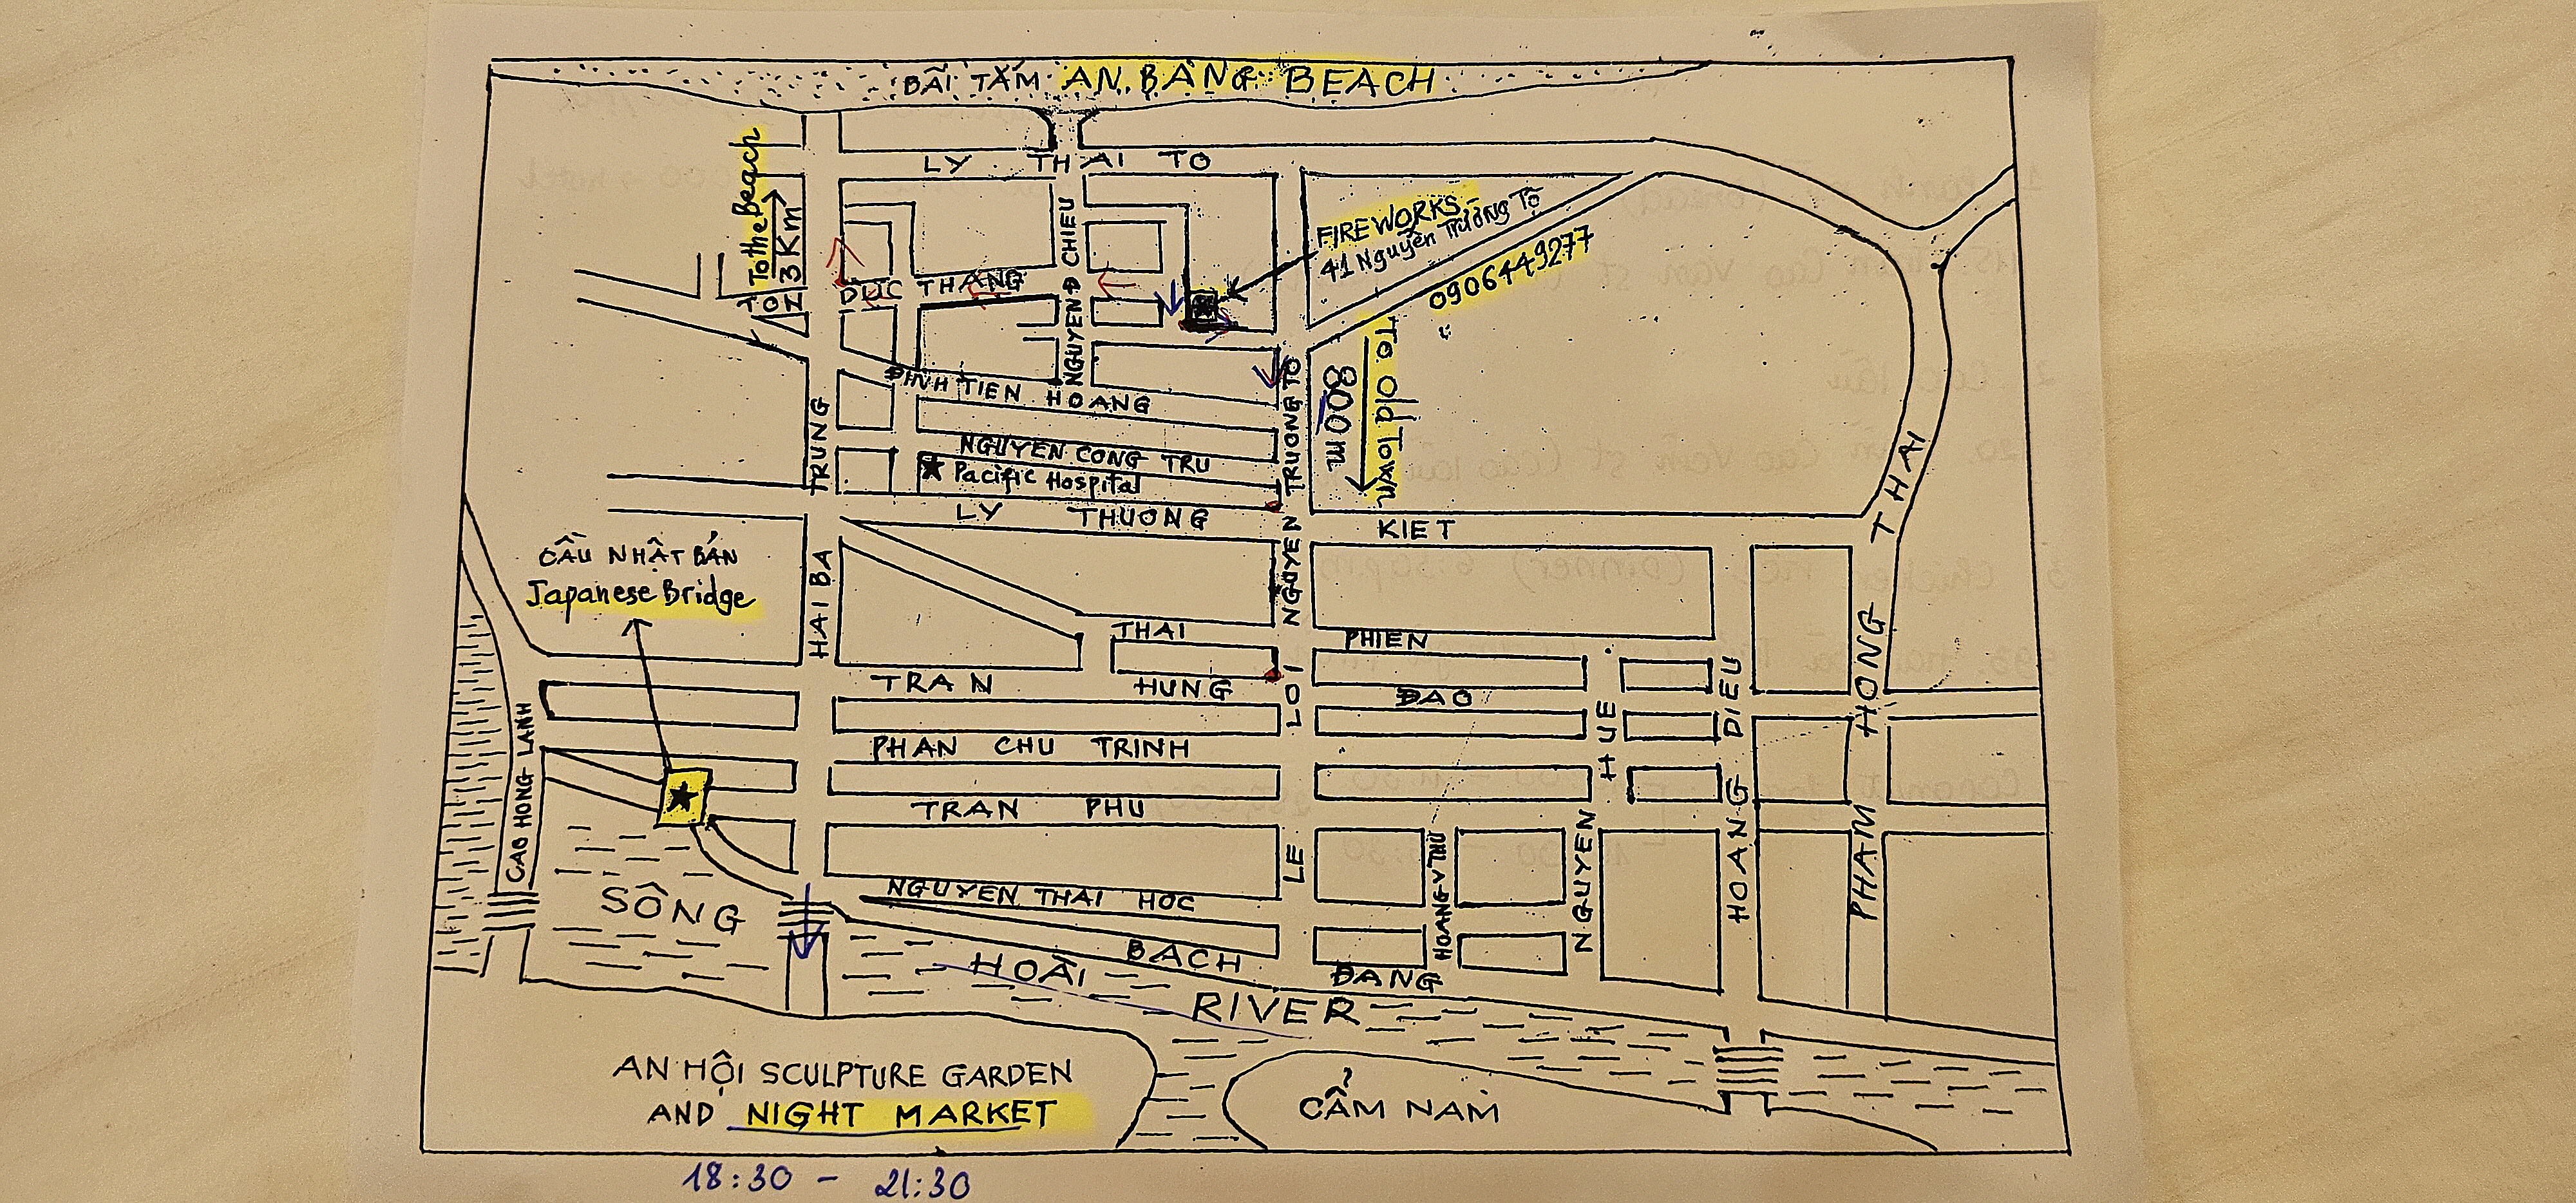 BÃI TẮM AN BANG BEACH
LY THAI TO
To the Beach
3 Km
FIREWORKS-
41 Nguyễn Trường Tộ
0906449277
To Old Town
800m
DUC THANG
NGUYEN Đ CHIEU
ĐINH TIEN HOANG
NGUYEN CONG TRU
Pacific Hospital
LY THUONG KIET
NGUYEN TRUONG TO
HAI BA TRUNG
CẦU NHẬT BẢN
Japanese Bridge
THAI PHIEN
TRAN HUNG ĐAO
PHAN CHU TRINH
TRAN PHU
NGUYEN THAI HOC
BACH ĐANG
CAO HONG LANH
LE LOI
HOANG V THU
NGUYEN HUE
HOANG DIEU
PHAM HONG THAI
SÔNG HOÀI RIVER
AN HỘI SCULPTURE GARDEN
AND NIGHT MARKET
CẨM NAM
18:30 - 21:30